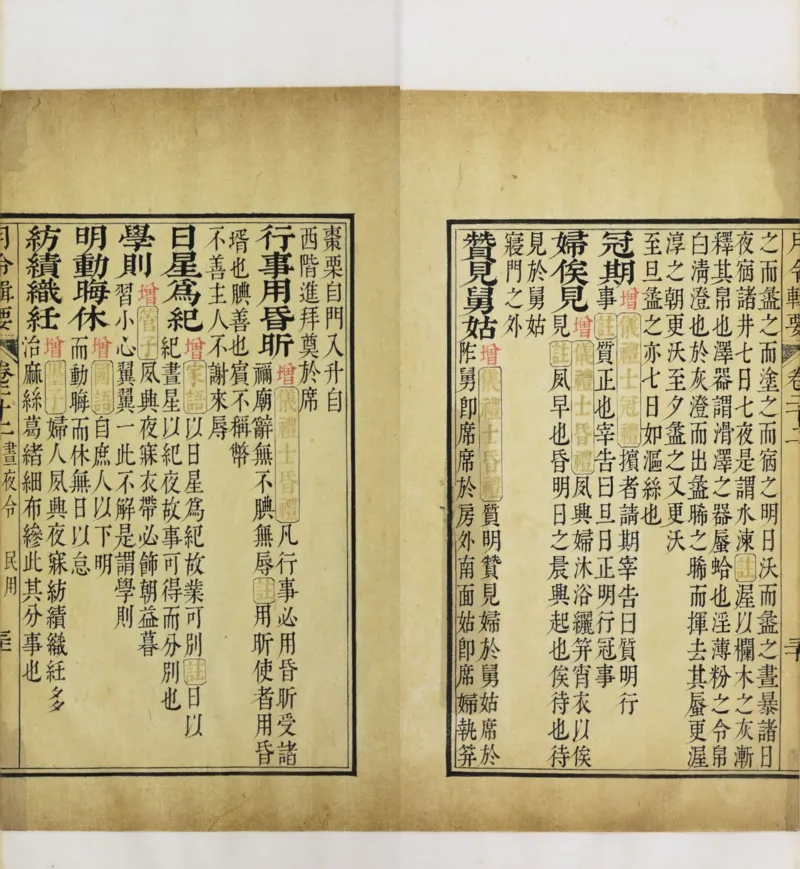 月令輯要 卷二十二
之而盝之而塗之而宿之明日沃而盝之晝暴諸日
夜宿諸井七日七夜是謂水湅註渥以欄木之灰漸
釋其帛也澤器謂滑澤之器蜃蛤也淫薄粉之令帛
白淸澄也於灰澄而出盝晞之晞而揮去其蜃更渥
淳之朝更沃至夕盝之又更沃
至旦盝之亦七日如漚絲也
冠期增儀禮士冠禮擯者請期宰告曰質明行
事註質正也宰告曰旦日正明行冠事
婦俟見增儀禮士昏禮夙興婦沐浴纚笄宵衣以俟
見註夙早也昏明日之晨興起也俟待也待
見於舅姑
寢門之外
贊見舅姑增儀禮士昏禮質明贊見婦於舅姑席於
阼舅卽席席於房外南面姑卽席婦執笲
棗栗自門入升自
西階進拜奠於席
行事用昏昕增儀禮士昏禮凡行事必用昏昕受諸
禰廟辭無不腆無辱註用昕使者用昏
壻也腆善也賓不稱幣
不善主人不謝來辱
日星爲紀增家語以日星爲紀故業可別註日以
紀晝星以紀夜故事可得而分別也
學則增管子夙興夜寐衣帶必飾朝益暮
習小心翼翼一此不解是謂學則
明動晦休增國語自庶人以下明
而動晦而休無日以怠
紡績織紝增婦人夙興夜寐紡績織紝多
治麻絲葛緒細布縿此其分事也
月令輯要 卷二十二 晝夜令 民用